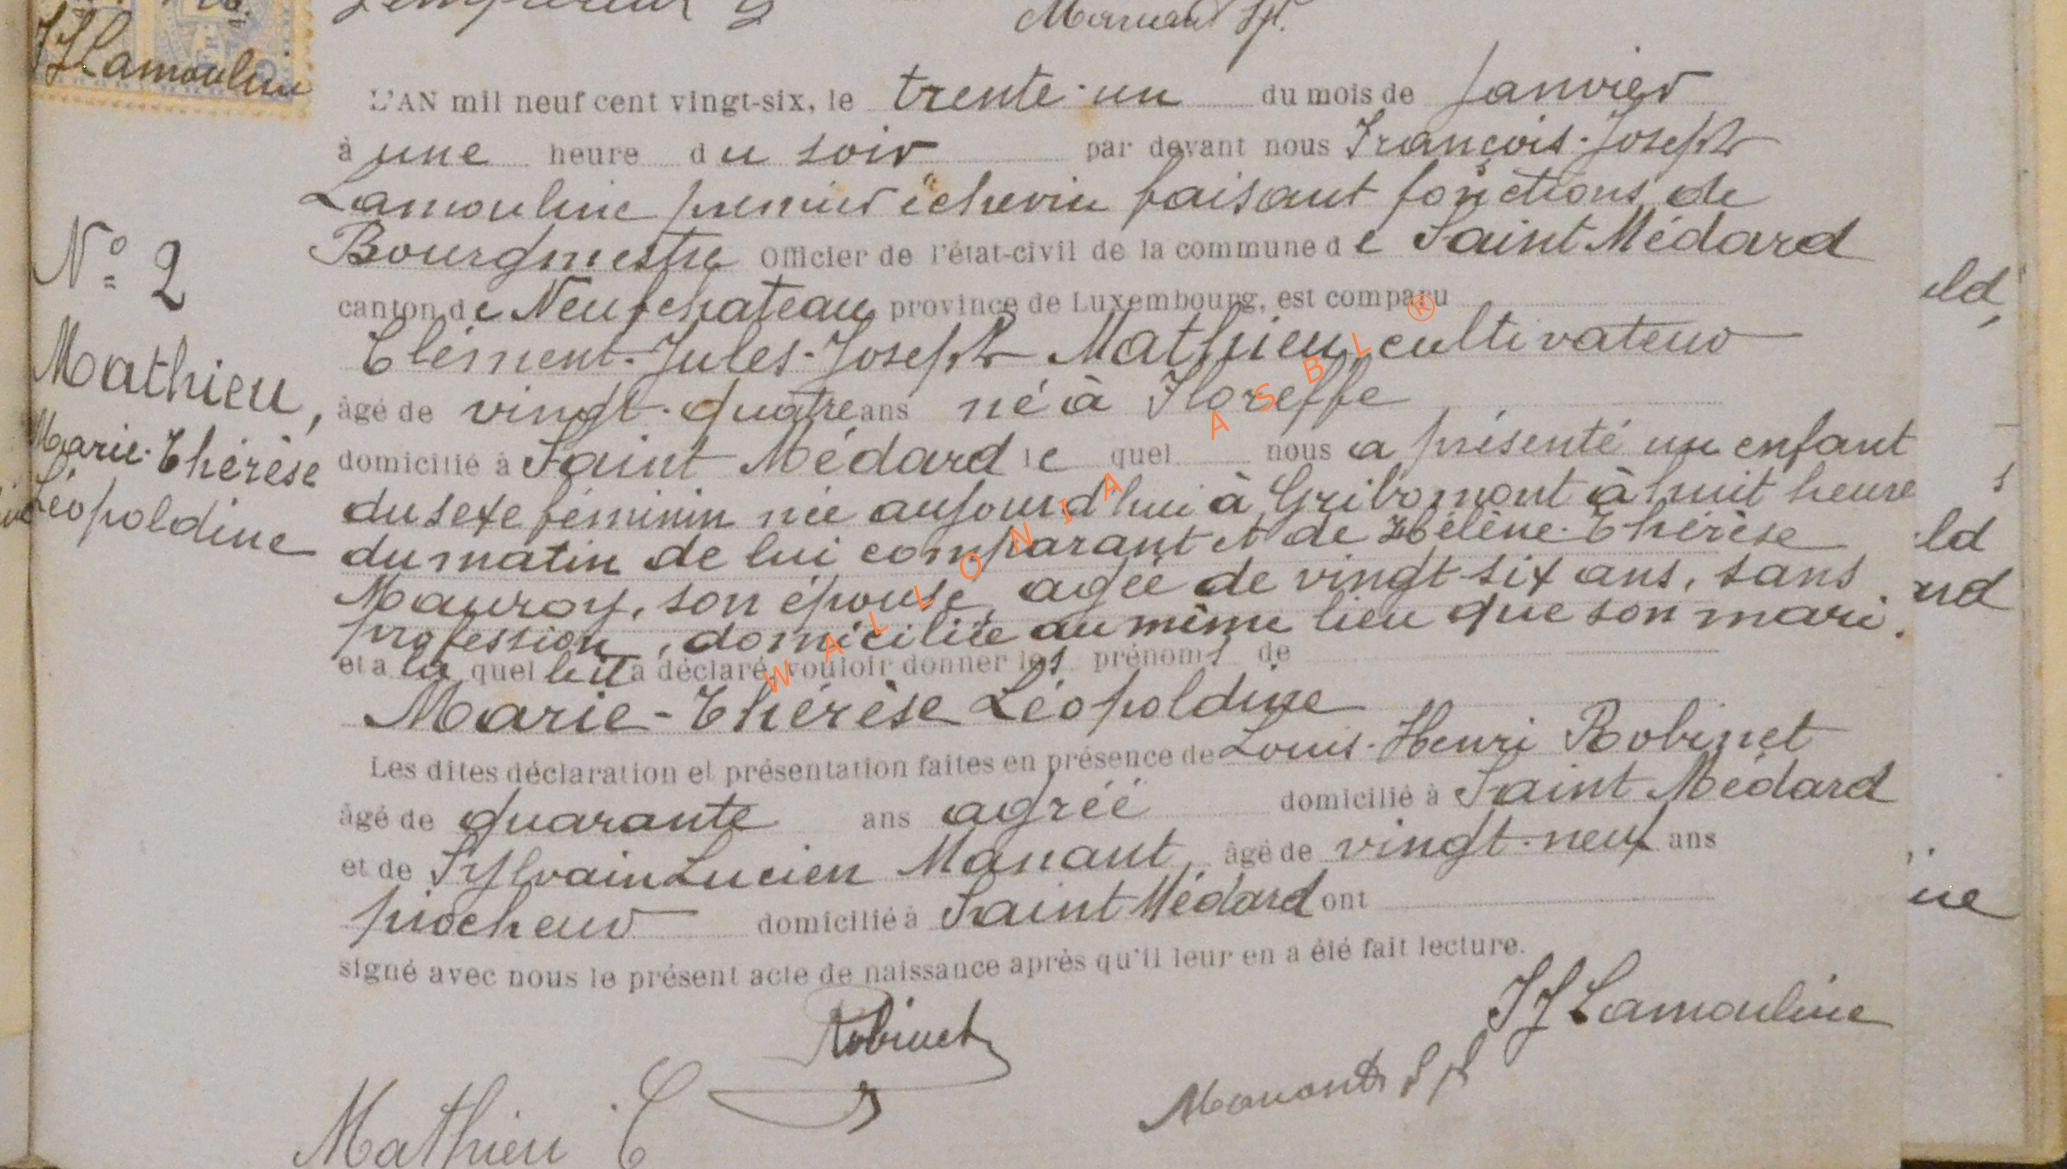 FJLamouline
L'AN mil neuf cent vingt-six, le trente-un du mois de Janvier
à une heure du soir par devant nous François-Joseph
Lamouline premier échevin faisant fonctions de
Bourgmestre Officier de l'état-civil de la commune de Saint Médard
canton de Neufchateau province de Luxembourg, est comparu
Clément-Jules-Joseph Mathieu cultivateur
âgé de vingt-quatre ans né à Floreffe
domicilié à Saint Médard lequel nous a présenté un enfant
du sexe féminin née aujourd'hui à Gribomont à huit heure
du matin de lui comparant et de Hélène-Thérèse
Mauroy, son épouse, agée de vingt-six ans, sans
profession, domiciliée au même lieu que son mari.
et a la quelle il a déclaré vouloir donner les prénoms de
Marie-Thérèse Léopoldine
Les dites déclaration et présentation faites en présence de Louis-Henri Robinet
âgé de quarante ans agréé domicilié à Saint Médard
et de Sylvain Lucien Manant, âgé de vingt-neuf ans
piocheur domicilié à Saint Médard ont
signé avec nous le présent acte de naissance après qu'il leur en a été fait lecture.
N° 2
Mathieu,
Marie-Thérèse
Léopoldine
Robinet
FJLamouline
Mathieu C
Manant
WALLONIA ASBL ®
eld,
eld
ard
ine